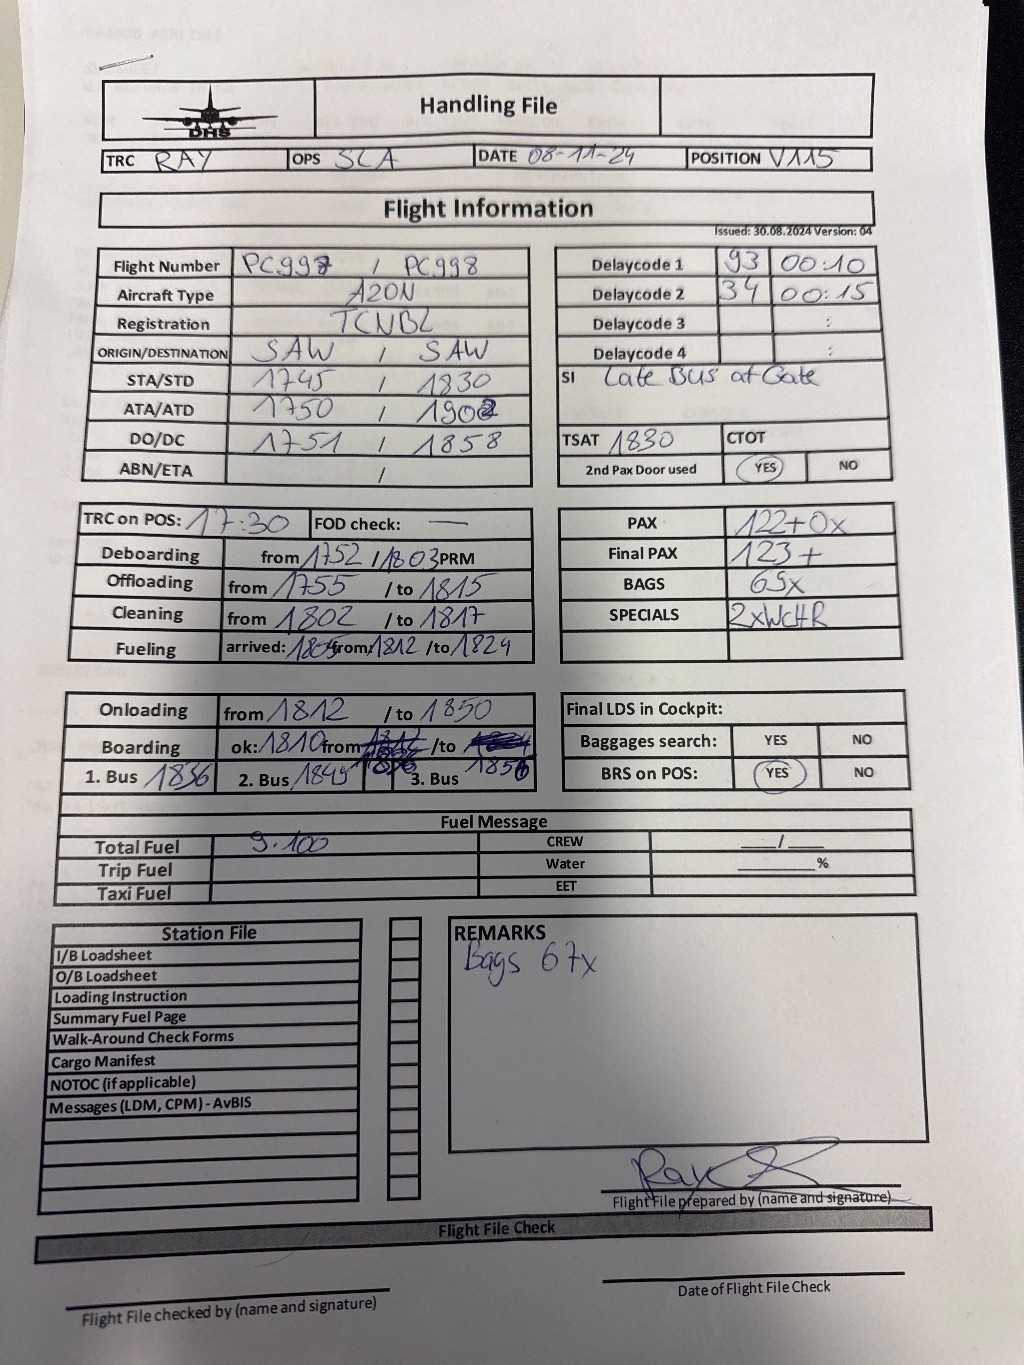 DHS
Handling File
TRC RAY OPS SLA DATE 08-11-24 POSITION V115
Flight Information
Issued: 30.08.2024 Version: 04
Flight Number PC997 / PC998
Aircraft Type A20N
Registration TCNBL
ORIGIN/DESTINATION SAW / SAW
STA/STD 1745 / 1830
ATA/ATD 1750 / 1902
DO/DC 1751 / 1858
ABN/ETA /
Delaycode 1 93 00:10
Delaycode 2 34 00:15
Delaycode 3 :
Delaycode 4 :
SI Late Bus at Gate
TSAT 1830 CTOT
2nd Pax Door used YES NO
TRC on POS: 17:30 FOD check: —
Deboarding from 1752 / 1803 PRM
Offloading from 1755 / to 1815
Cleaning from 1802 / to 1817
Fueling arrived: 1805 from: 1812 /to 1824
PAX 122+0x
Final PAX 123+
BAGS 69x
SPECIALS 2xWCHR
Onloading from 1812 / to 1850
Boarding ok: 1810 from 1836 /to
1. Bus 1836 2. Bus 1849 3. Bus 1856
Final LDS in Cockpit:
Baggages search: YES NO
BRS on POS: YES NO
Fuel Message
Total Fuel 9.100 CREW ____/____
Trip Fuel Water ________%
Taxi Fuel EET
Station File
I/B Loadsheet
O/B Loadsheet
Loading Instruction
Summary Fuel Page
Walk-Around Check Forms
Cargo Manifest
NOTOC (if applicable)
Messages (LDM, CPM) - AvBIS
REMARKS
Bags 67x
Ray
Flight File prepared by (name and signature)
Flight File Check
Flight File checked by (name and signature)
Date of Flight File Check